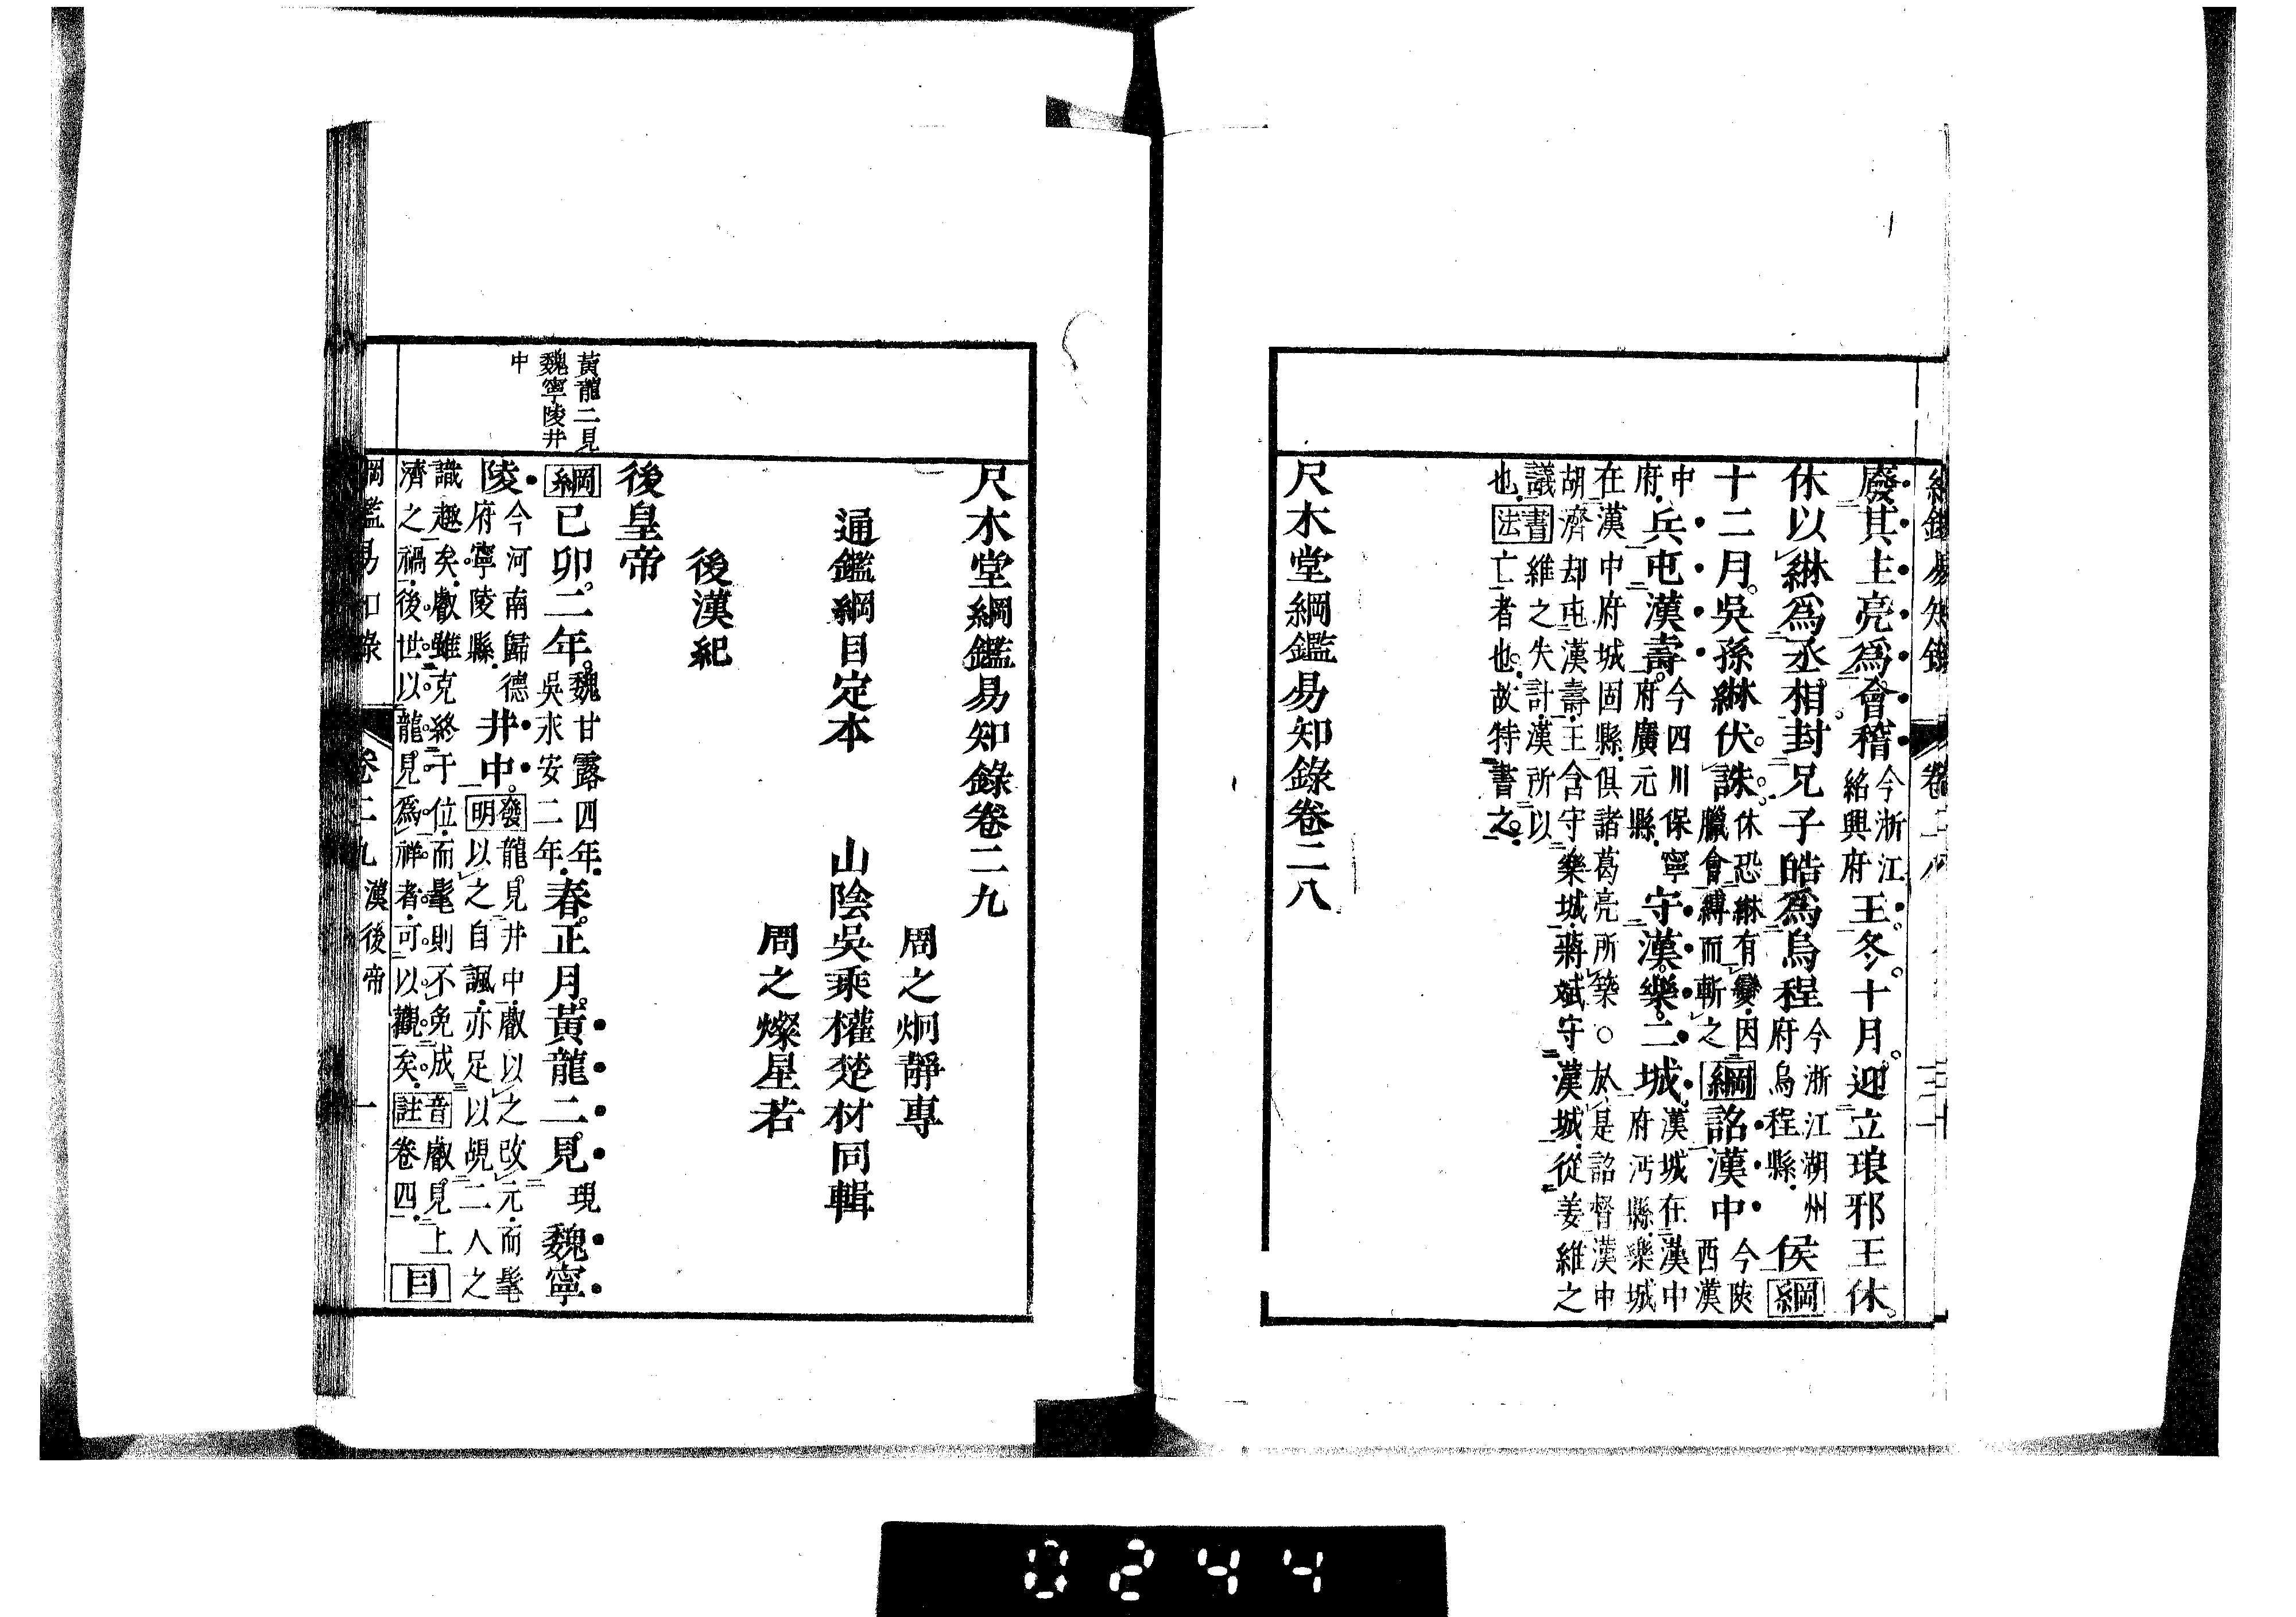 綱鑑易知錄 卷二八
廢其主亮爲會稽今浙江紹興府王冬十月迎立琅邪王休
休以綝爲丞相封兄子皓爲烏程今浙江湖州府烏程縣侯綱
十二月吳孫綝伏誅休恐綝有變因臘會縛而斬之綱詔漢中今陝西漢
中府兵屯漢壽今四川保寧府廣元縣守漢樂二城漢城在漢中府沔縣樂城
在漢中府城固縣俱諸葛亮所築○於是詔督漢中
胡濟却屯漢壽王含守樂城蔣斌守漢城從姜維之
議書維之失計漢所以
也法亡者也故特書之
尺木堂綱鑑易知錄卷二八
尺木堂綱鑑易知錄卷二九
周之炯靜專
通鑑綱目定本 山陰吳乘權楚材同輯
周之燦星若
後漢紀
後皇帝
黃龍二見
魏寧陵井
中
綱己卯二年魏甘露四年吳永安二年春正月黃龍二見現魏寧
陵今河南歸德府寧陵縣井中發明龍見井中叡以之改元而髦以之自諷亦足以覘二人之
識趣矣叡雖克終于位而髦則不免成音叡見上
濟之禍後世以龍見爲祥者可以觀矣註卷四目
綱鑑易知錄 卷二九 漢後帝 一
0244